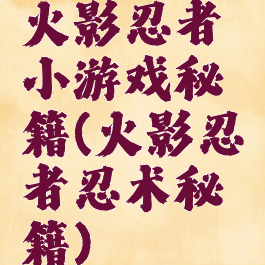 火影忍者
小游戏秘
籍(火影忍
者忍术秘
籍)